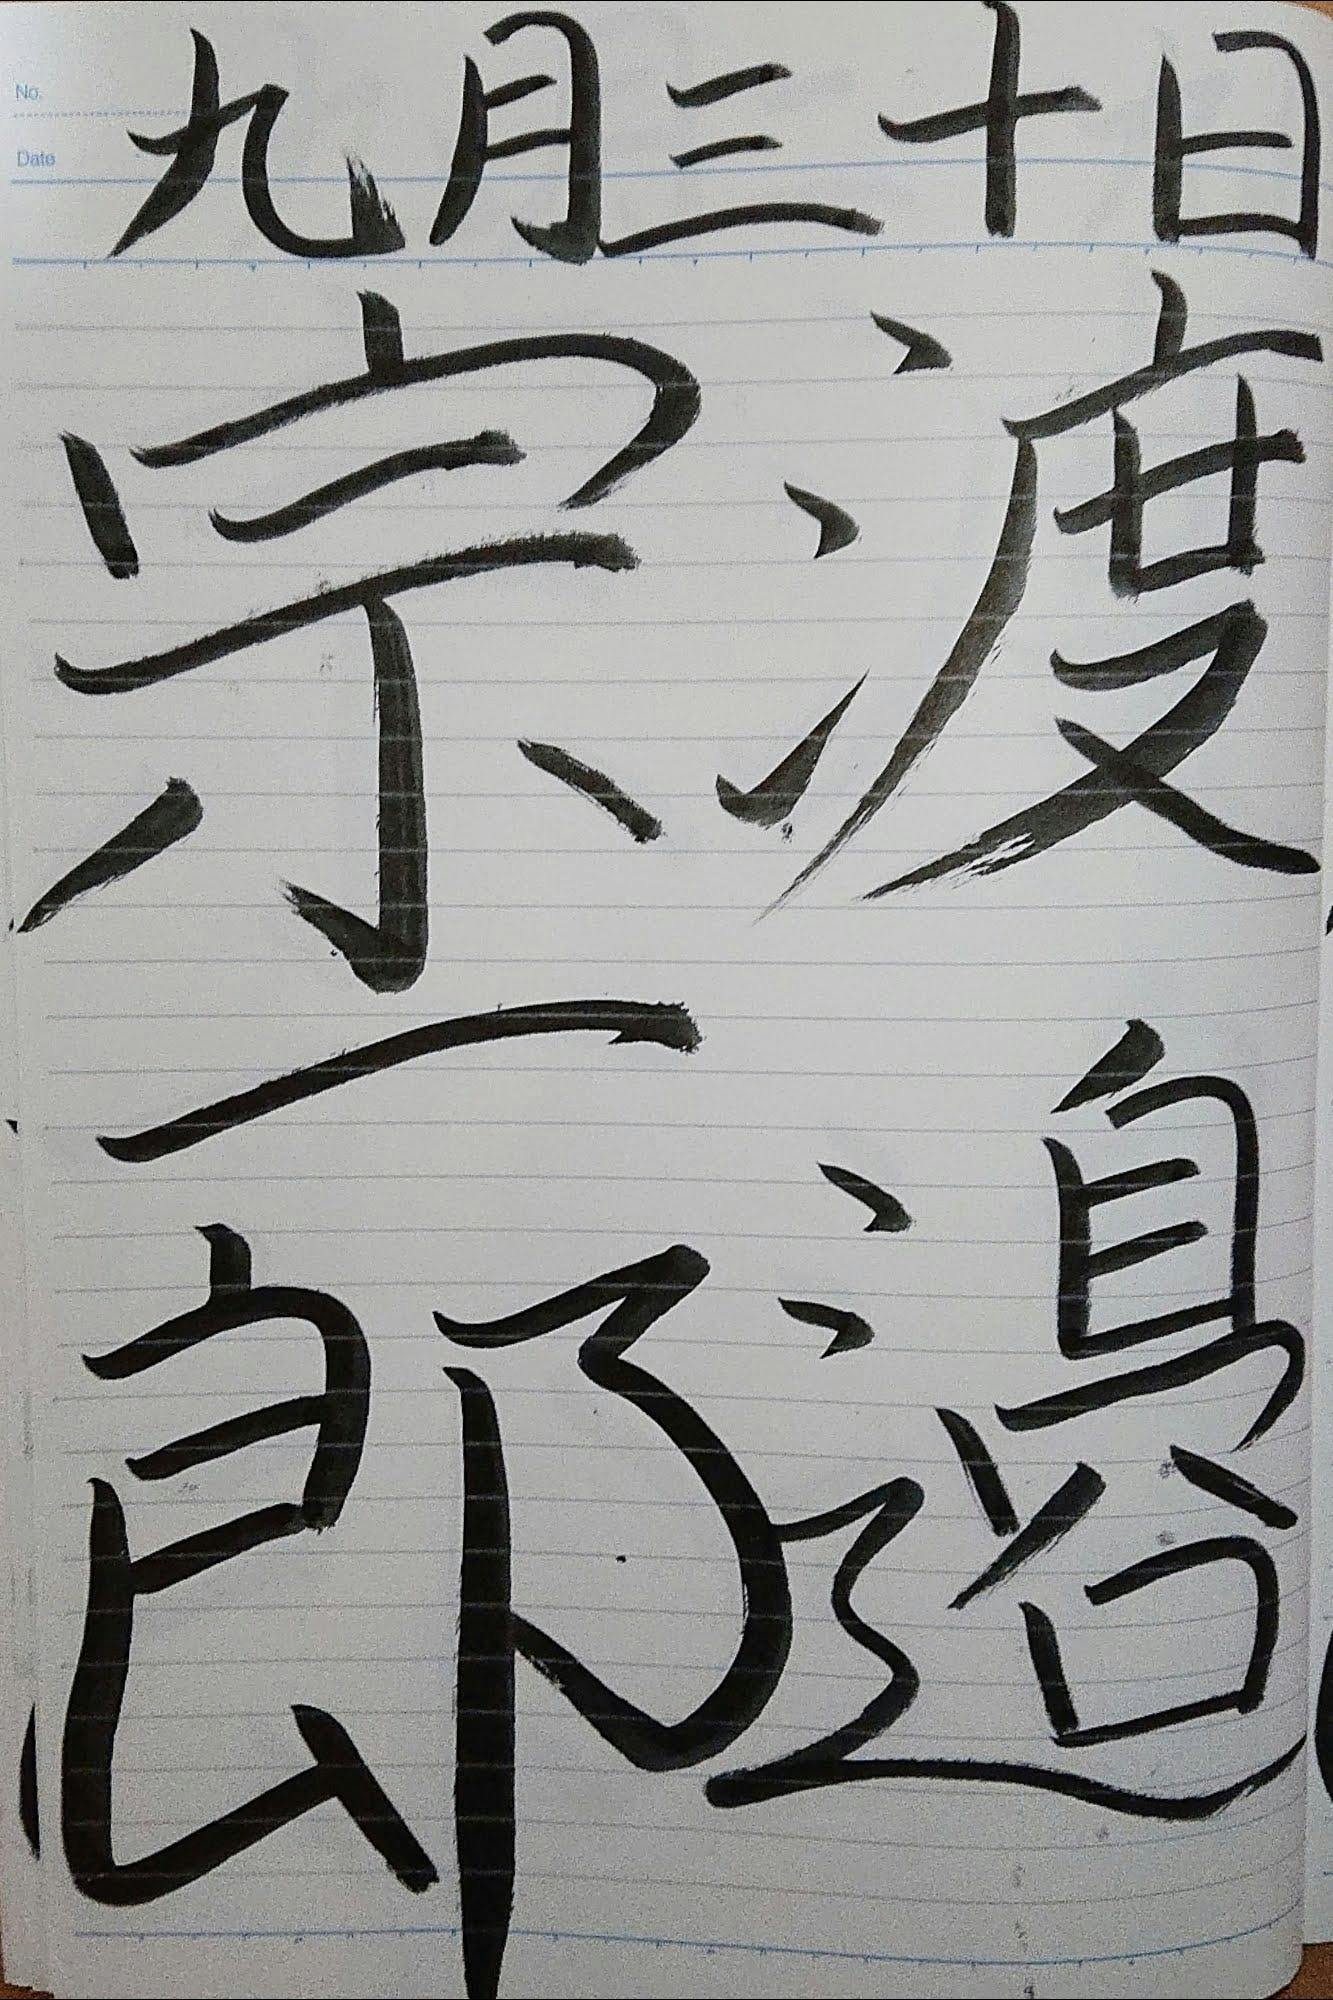 No.
Date
九月三十日
渡邉
宗一郎